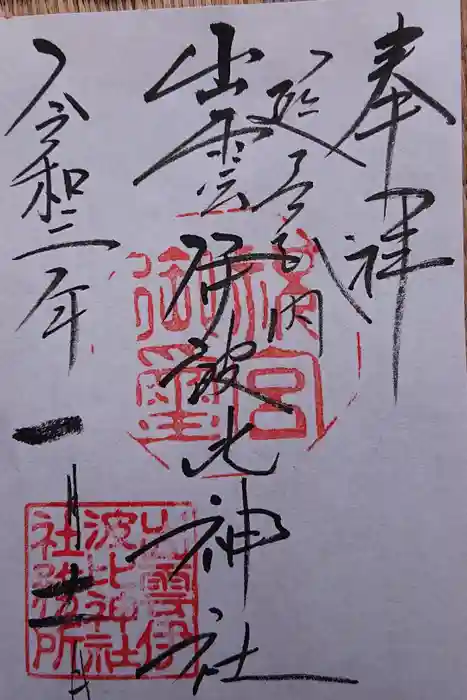 奉拝
延喜式内
出雲伊波比神社
令和二年
一月十一日
御宮璽
出雲伊
波比神社
社務所